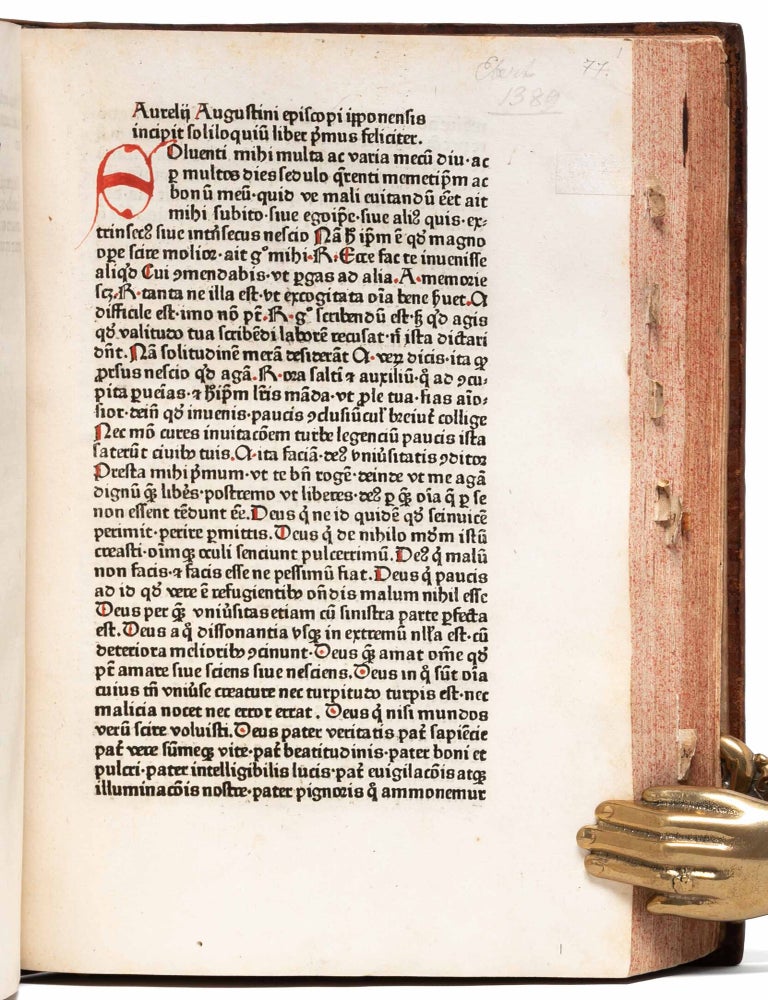 77.
1389
Aurelij Augustini episcopi ipponensis
incipit soliloquiū liber p̄mus feliciter.
SOluenti mihi multa ac varia mecū diu·ac
ꝑ multos dies sedulo q̄renti memetip̄m ac
bonū meū·quid ve mali euitandū eēt ait
mihi subito·siue egoip̄e·siue aliꝰ quis·ex-
trinsecꝰ siue intn̄secus nescio Nā ħ ip̄m ē qd̄ magno
ope scire molior·ait gͦ mihi·R·Ecce fac te inuenisse
aliqͥd Cui ꝯmendabis·vt ꝑgas ad alia·A·memorie
scꝫ·R·tanta ne illa est·vt excogitata oīa bene ẜuet·A
difficile est·imo nō pt̄·R·gͦ scribendū est·ẜꝫ qͥd agis
qd̄ valitudo tua scribēdi laborē recusat·n̄ ista dictari
dn̄t·Nā solitudinē merā desiderāt A·veꝝ dicis·ita qꝫ
ꝓrsus nescio qͥd agā·R·ora saltī ⁊ auxiliū·q̄ ad ꝯcu-
pita ꝑueias·⁊ ħip̄m lr̄is māda·vt ꝓle tua·fias aīo-
sior·dein̄ qd̄ inuenis·paucis ꝯclusiūcul̓ breiuť collige
Nec mō cures inuitacōem turbe legenciū paucis ista
saterūt ciuibꝰ tuis·A·ita faciā·deꝰ vniūsitatis ꝯditor
Presta mihi p̄mum·vt te bn̄ rogē·deinde vt me agā
dignū quē libēs·postremo vt liberes·deꝰ ꝑ quē oīa q̄ ꝑ se
non essent tēdunt ēe·Deus qͥ ne id quidē qd̄ seinuicē
perimit·perire ꝑmittis·Deus qͥ de nihilo mūdm istū
creasti·oīmqꝫ oculi senciunt pulcerrimū·Deꝰ qͥ malū
non facis·⁊ facis esse ne pessimū fiat·Deus qͥ paucis
ad id qd̄ vere ē refugientibꝰ on̄dis malum nihil esse
Deus per quē vniūsitas etiam cū sinistra parte ꝑfecta
est·Deus a qͦ dissonantia vsqꝫ in extremū nlľa est·cū
deteriora melioribꝰ ꝯcinunt·Deus quē amat om̄e qd̄
pt̄ amare siue sciens siue nesciens·Deus in qͦ sūt oīa
cuius tn̄ vniūse creature nec turpitudo turpis est·nec
malicia nocet nec error errat·Deus qͥ nisi mundos
verū scire voluisti·Deus pater veritatis pať sapiēcie
pať vere sūmeqꝫ vite·pať beatitudinis·pater boni et
pulcri·pater intelligibilis lucis·pať euigilacōis atqꝫ
illuminacōis nostre·pater pignoris qͦ ammonemur